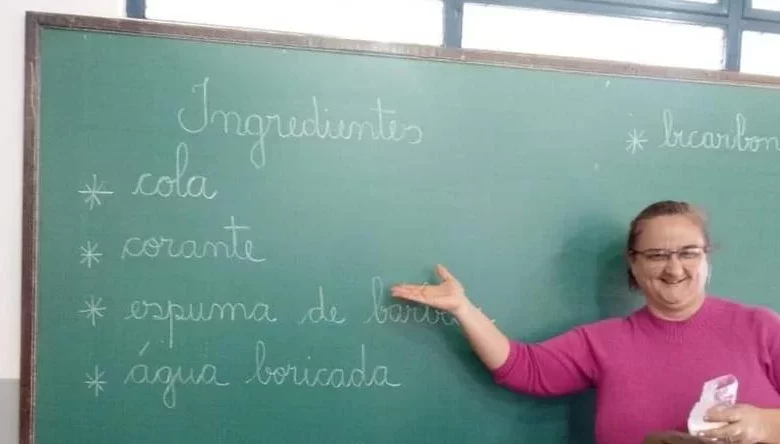 Ingredientes
* cola
* corante
* espuma de
* água boricada
* bicarbon